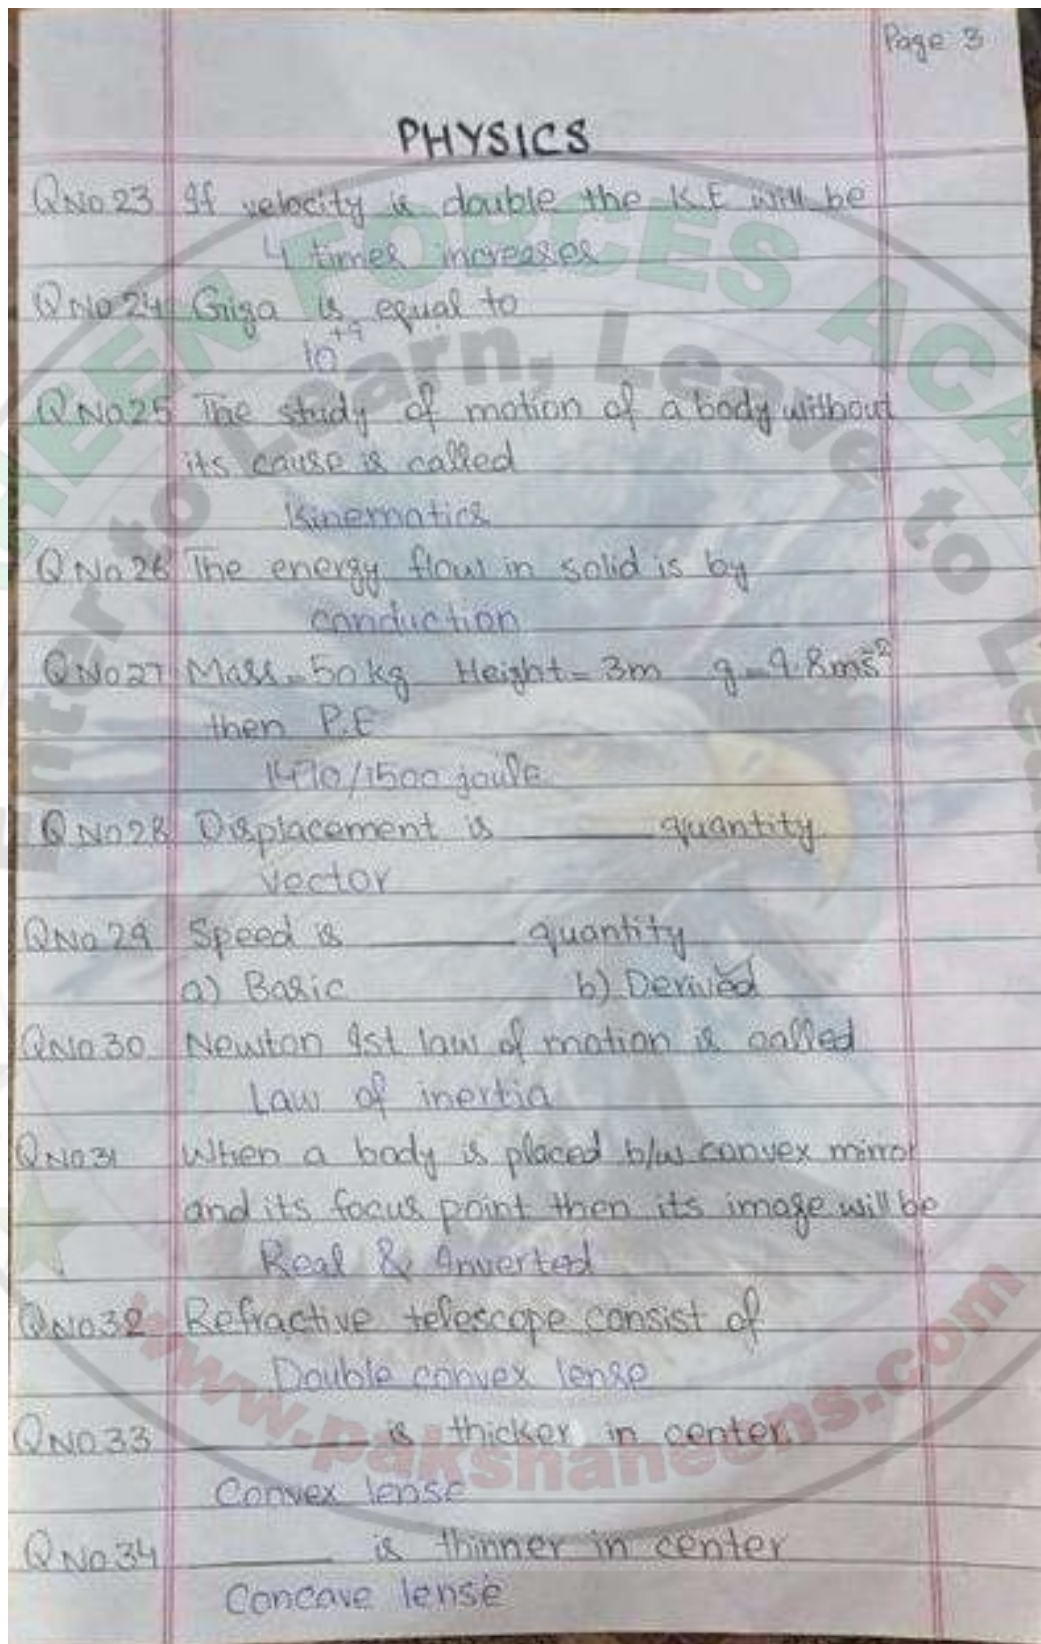 Page 3
PHYSICS
Q No 23 If velocity is double the K.E will be
4 times increases
Q No 24 Giga is equal to
10^+9
Q No 25 The study of motion of a body without
its cause is called
Kinematics
Q No 26 The energy flow in solid is by
conduction
Q No 27 Mass = 50 kg Height = 3m g = 9.8 ms^-2
then P.E
1470/1500 joule
Q No 28 Displacement is ______ quantity
Vector
Q No 29 Speed is ______ quantity
a) Basic b) Derived
Q No 30 Newton Ist law of motion is called
Law of inertia
Q No 31 When a body is placed b/w convex mirror
and its focus point then its image will be
Real & Inverted
Q No 32 Refractive telescope consist of
Double convex lense
Q No 33 ______ is thicker in center
Convex lense
Q No 34 ______ is thinner in center
Concave lense
FORCES
to Learn, Leave to
www.pakshaheens.com